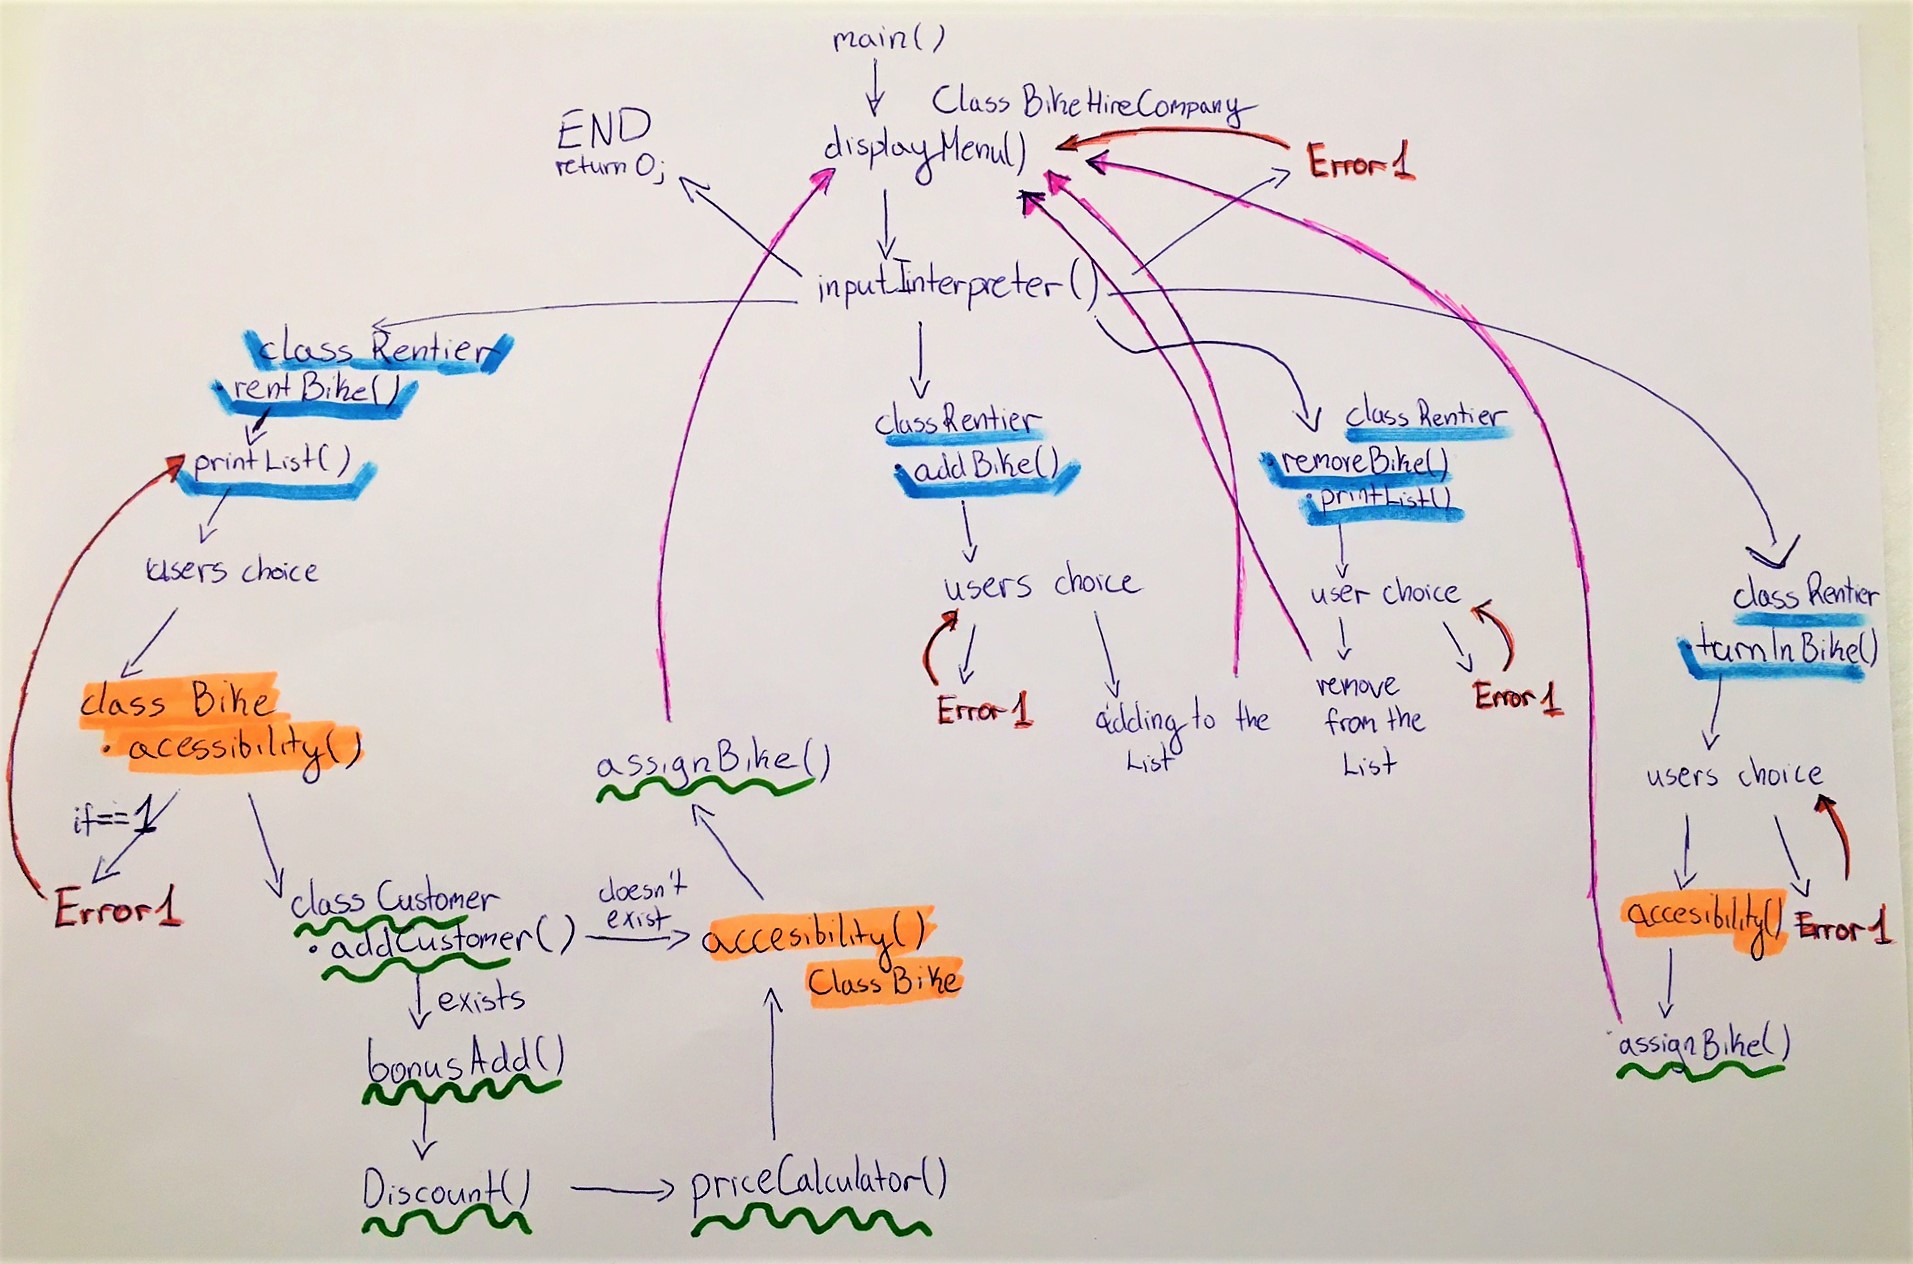 main()
Class BikeHireCompany
END
return 0;
displayMenu()
Error1
inputIinterpreter()
class Rentier
• rentBike()
printList()
users choice
class Bike
• acessibility()
if==1
Error1
class Customer
• addCustomer()
doesn't
exist
exists
bonusAdd()
Discount()
priceCalculator()
accesibility()
Class Bike
assignBike()
class Rentier
• addBike()
users choice
Error1
adding to the
List
class Rentier
• removeBike()
• printList()
user choice
remove
from the
List
Error1
class Rentier
• turnInBike()
users choice
accesibility()
Error1
assignBike()